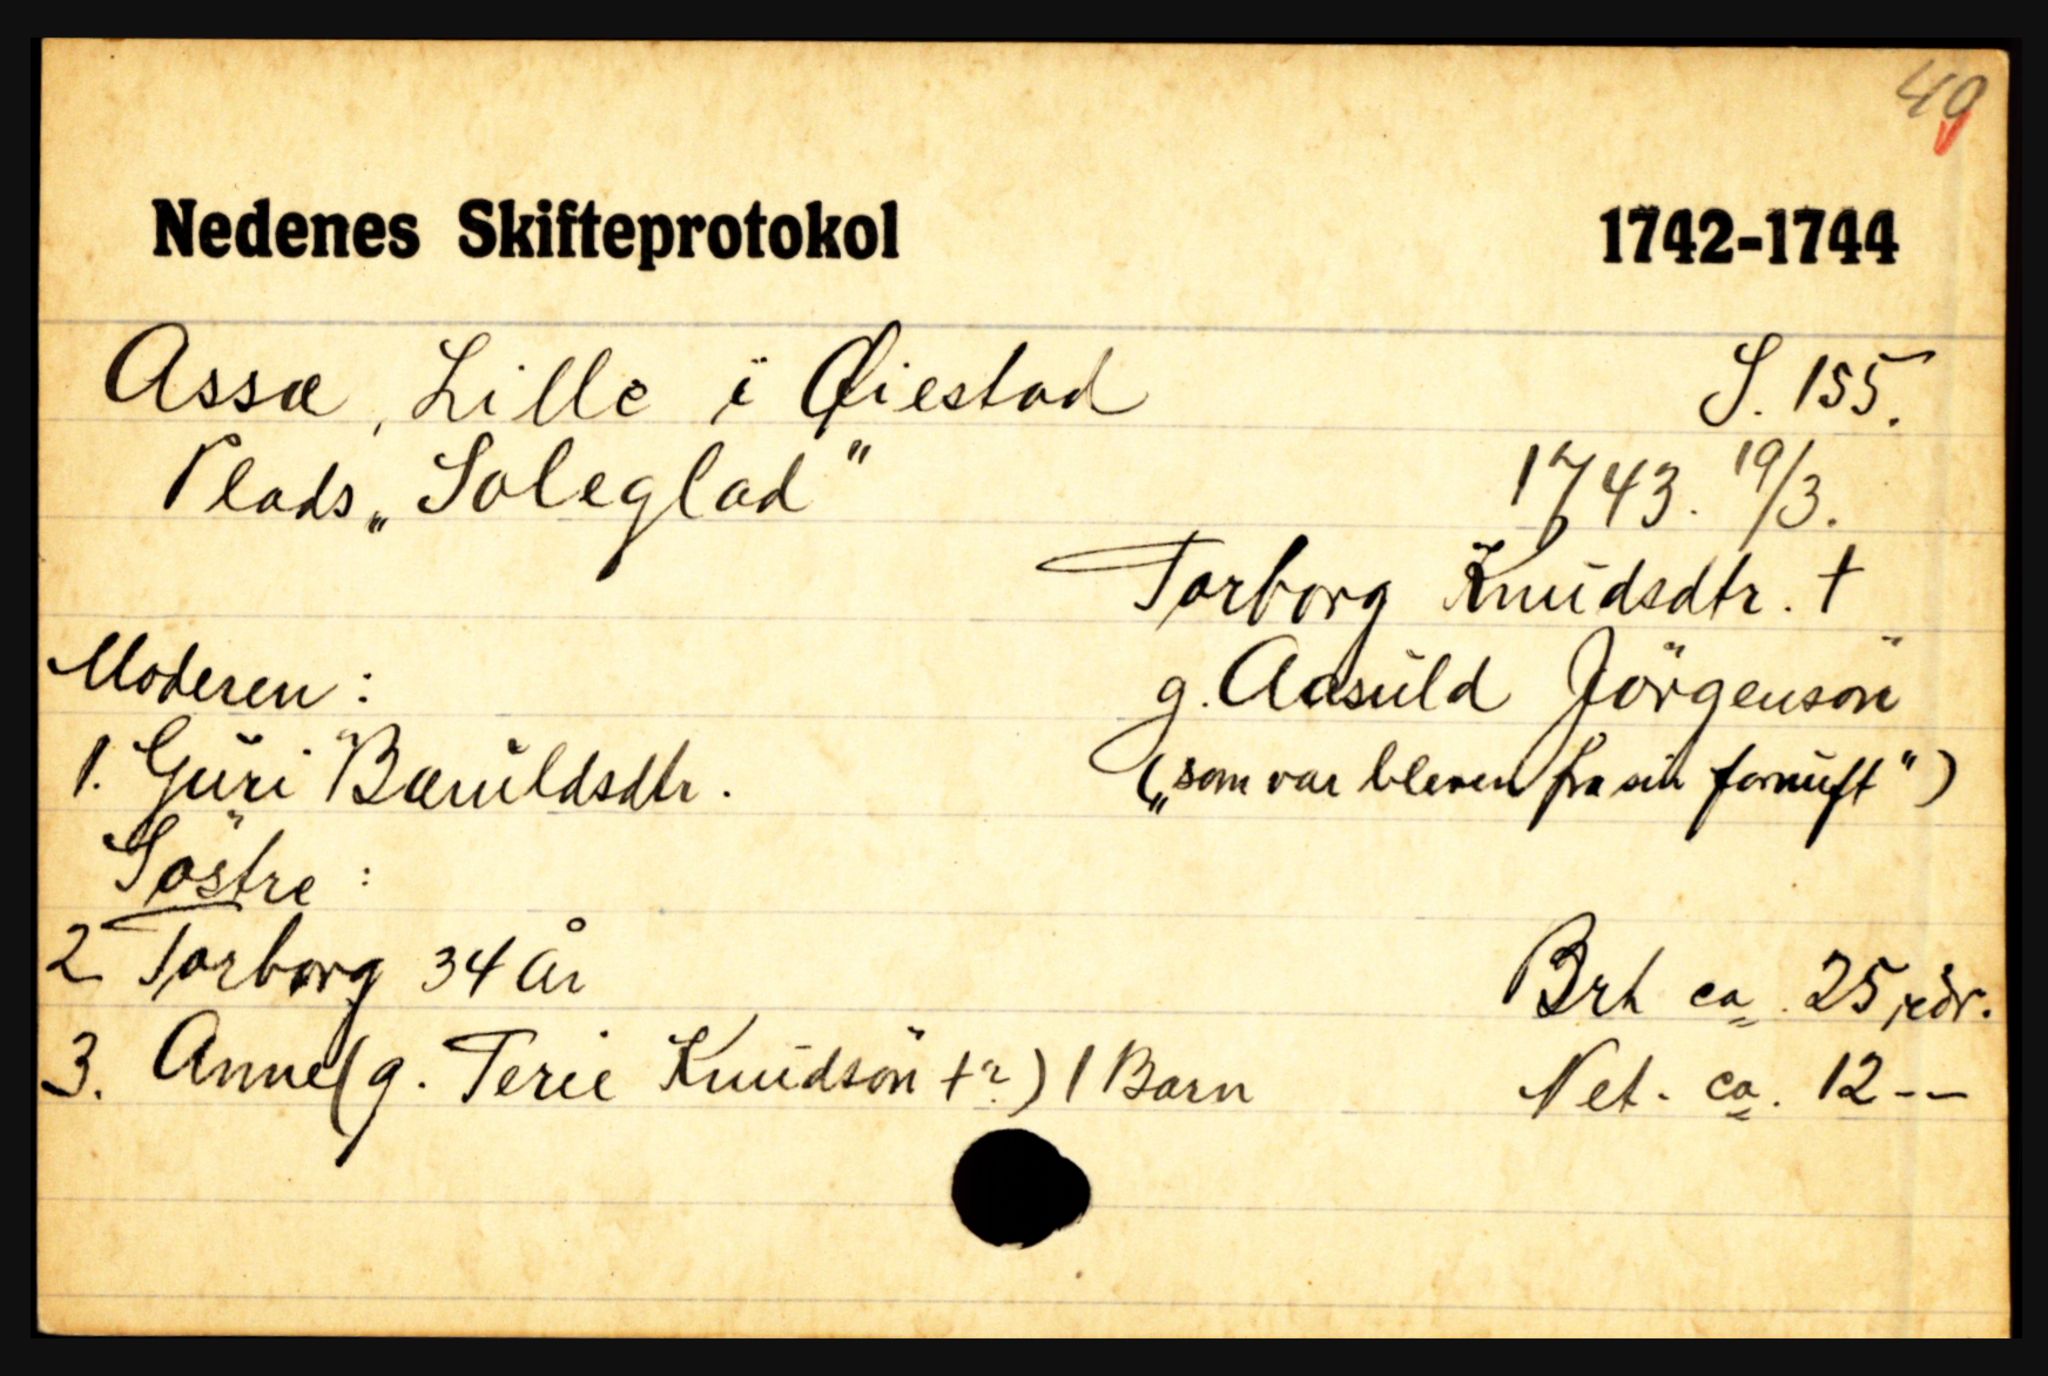 49
Nedenes Skifteprotokol 1742-1744
Assæ, Lille i Øiestad S. 155.
Plads „Soleglad" 1743. 19/3.
Torborg Knudsdtr. †
Moderen: g. Aasuld Jörgensön
1. Guri Bæruldsdtr. („som var bleven fra sin fornuft")
Söstre:
2 Torborg 34 år Brt ca. 25 rdr.
3. Anne (g. Terie Knudsön †?) 1 Barn Net. ca. 12 --